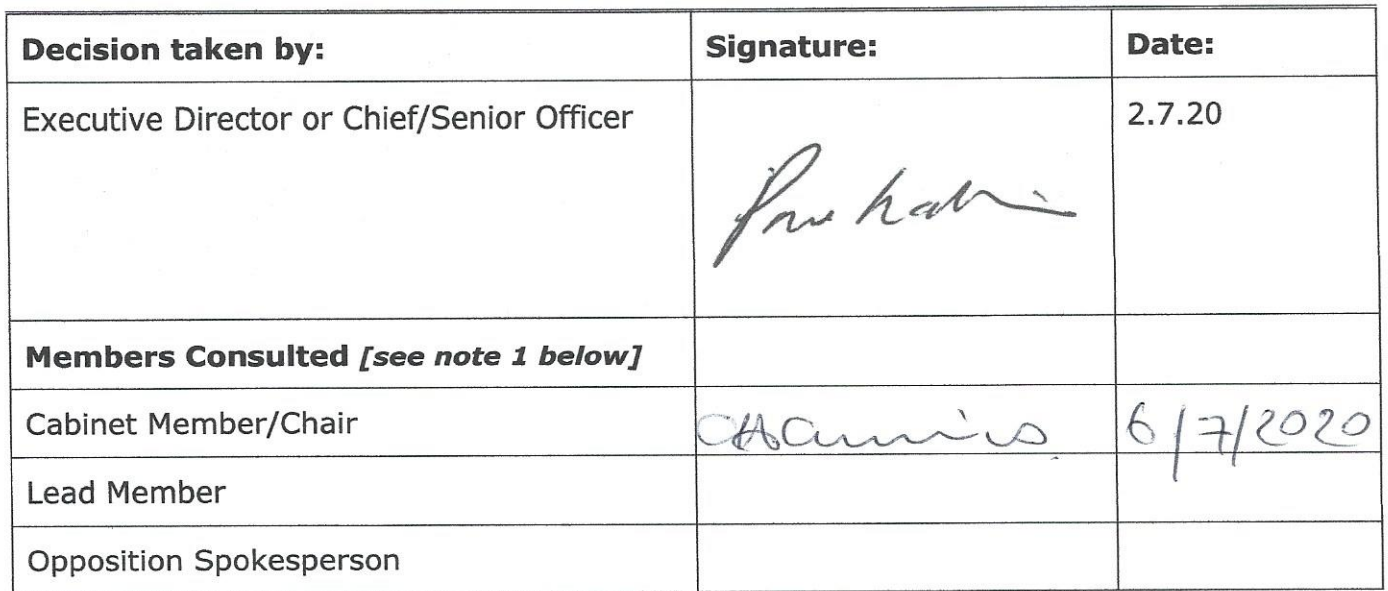 Decision taken by: Signature: Date:
Executive Director or Chief/Senior Officer 2.7.20
Members Consulted [see note 1 below]
Cabinet Member/Chair 6/7/2020
Lead Member
Opposition Spokesperson